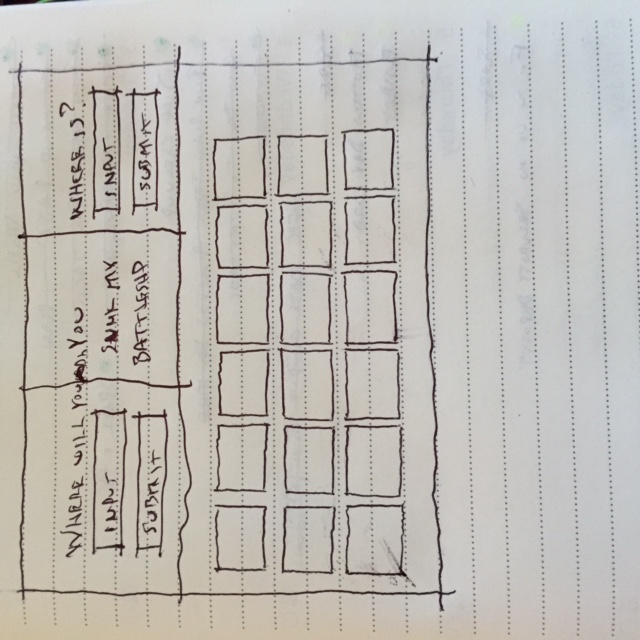 WHERE WILL YOU
INPUT
SUBMIT
YOU
SUNK MY
BATTLESHIP
WHERE IS?
INPUT
SUBMIT